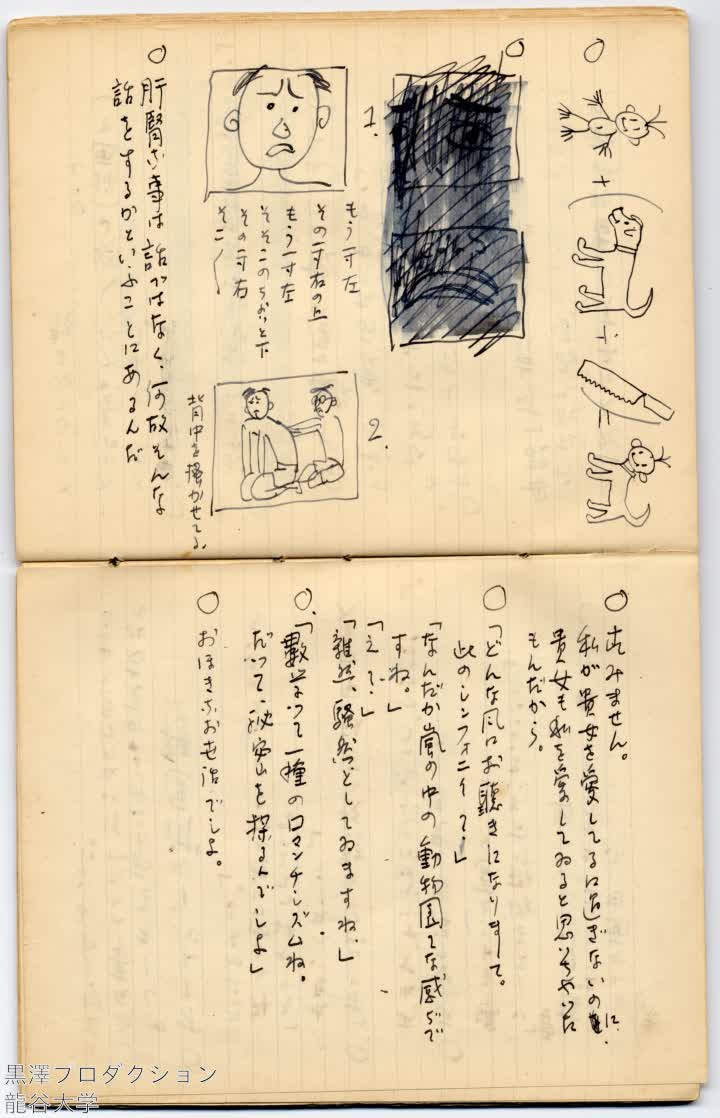 ○
+
+
=
○
1.
もう一寸左
その一寸右の上
もう一寸左
そそこのちよつと下
その一寸右
そこ〱
2.
背中を掻かせてる、
○ 肝腎な事は話ではなく、何故そんな
話をするかといふことにあるんだ
○ すみません。
私が貴女を愛してるに過ぎないのに、
貴女も私を愛してゐると思いちやいた
もんだから。
○ 「どんな風にお聴きになりまして。
此のシンフォニイで」
「なんだか嵐の中の動物園てな感じで
すね。」
「えで?」
「雑然、騒然としてゐますね」
○ 「數学つて一種のロマンチシズムね。
だつて、秘密を探るんでしよ」
○ おほきなお世話でしよ。
黒澤プロダクション
龍谷大学